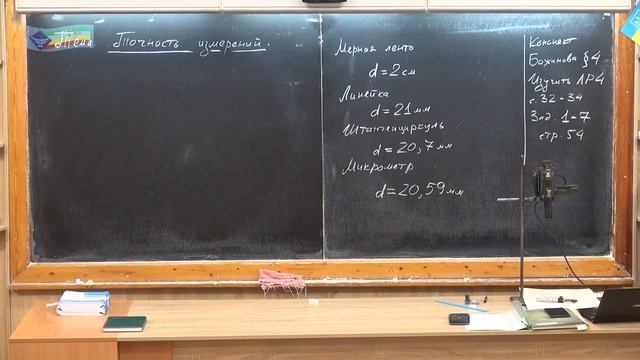 Тема Точность измерений.
Мерная лента
d = 2 см
Линейка
d = 21 мм
Штангенциркуль
d = 20,7 мм
Микрометр
d = 20,59 мм
Конспект
Божинова § 4
Изучить ЛР4
с. 32-34
Зад. 1-7
стр. 54